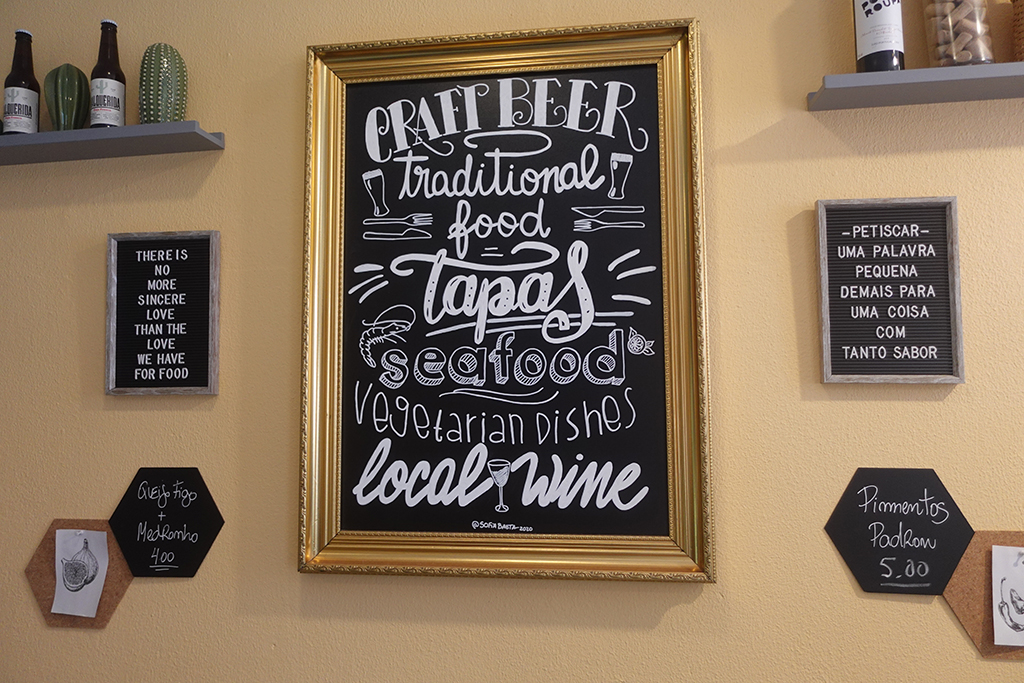 CRAFT BEER
traditional
food
tapas
seafood
Vegetarian Dishes
local wine
@SOFIA BAETA-2020
THERE IS
NO
MORE
SINCERE
LOVE
THAN THE
LOVE
WE HAVE
FOR FOOD
-PETISCAR-
UMA PALAVRA
PEQUENA
DEMAIS PARA
UMA COISA
COM
TANTO SABOR
Queijo Figo
+
Medronho
4.00
Pimmentos
Padron
5,00